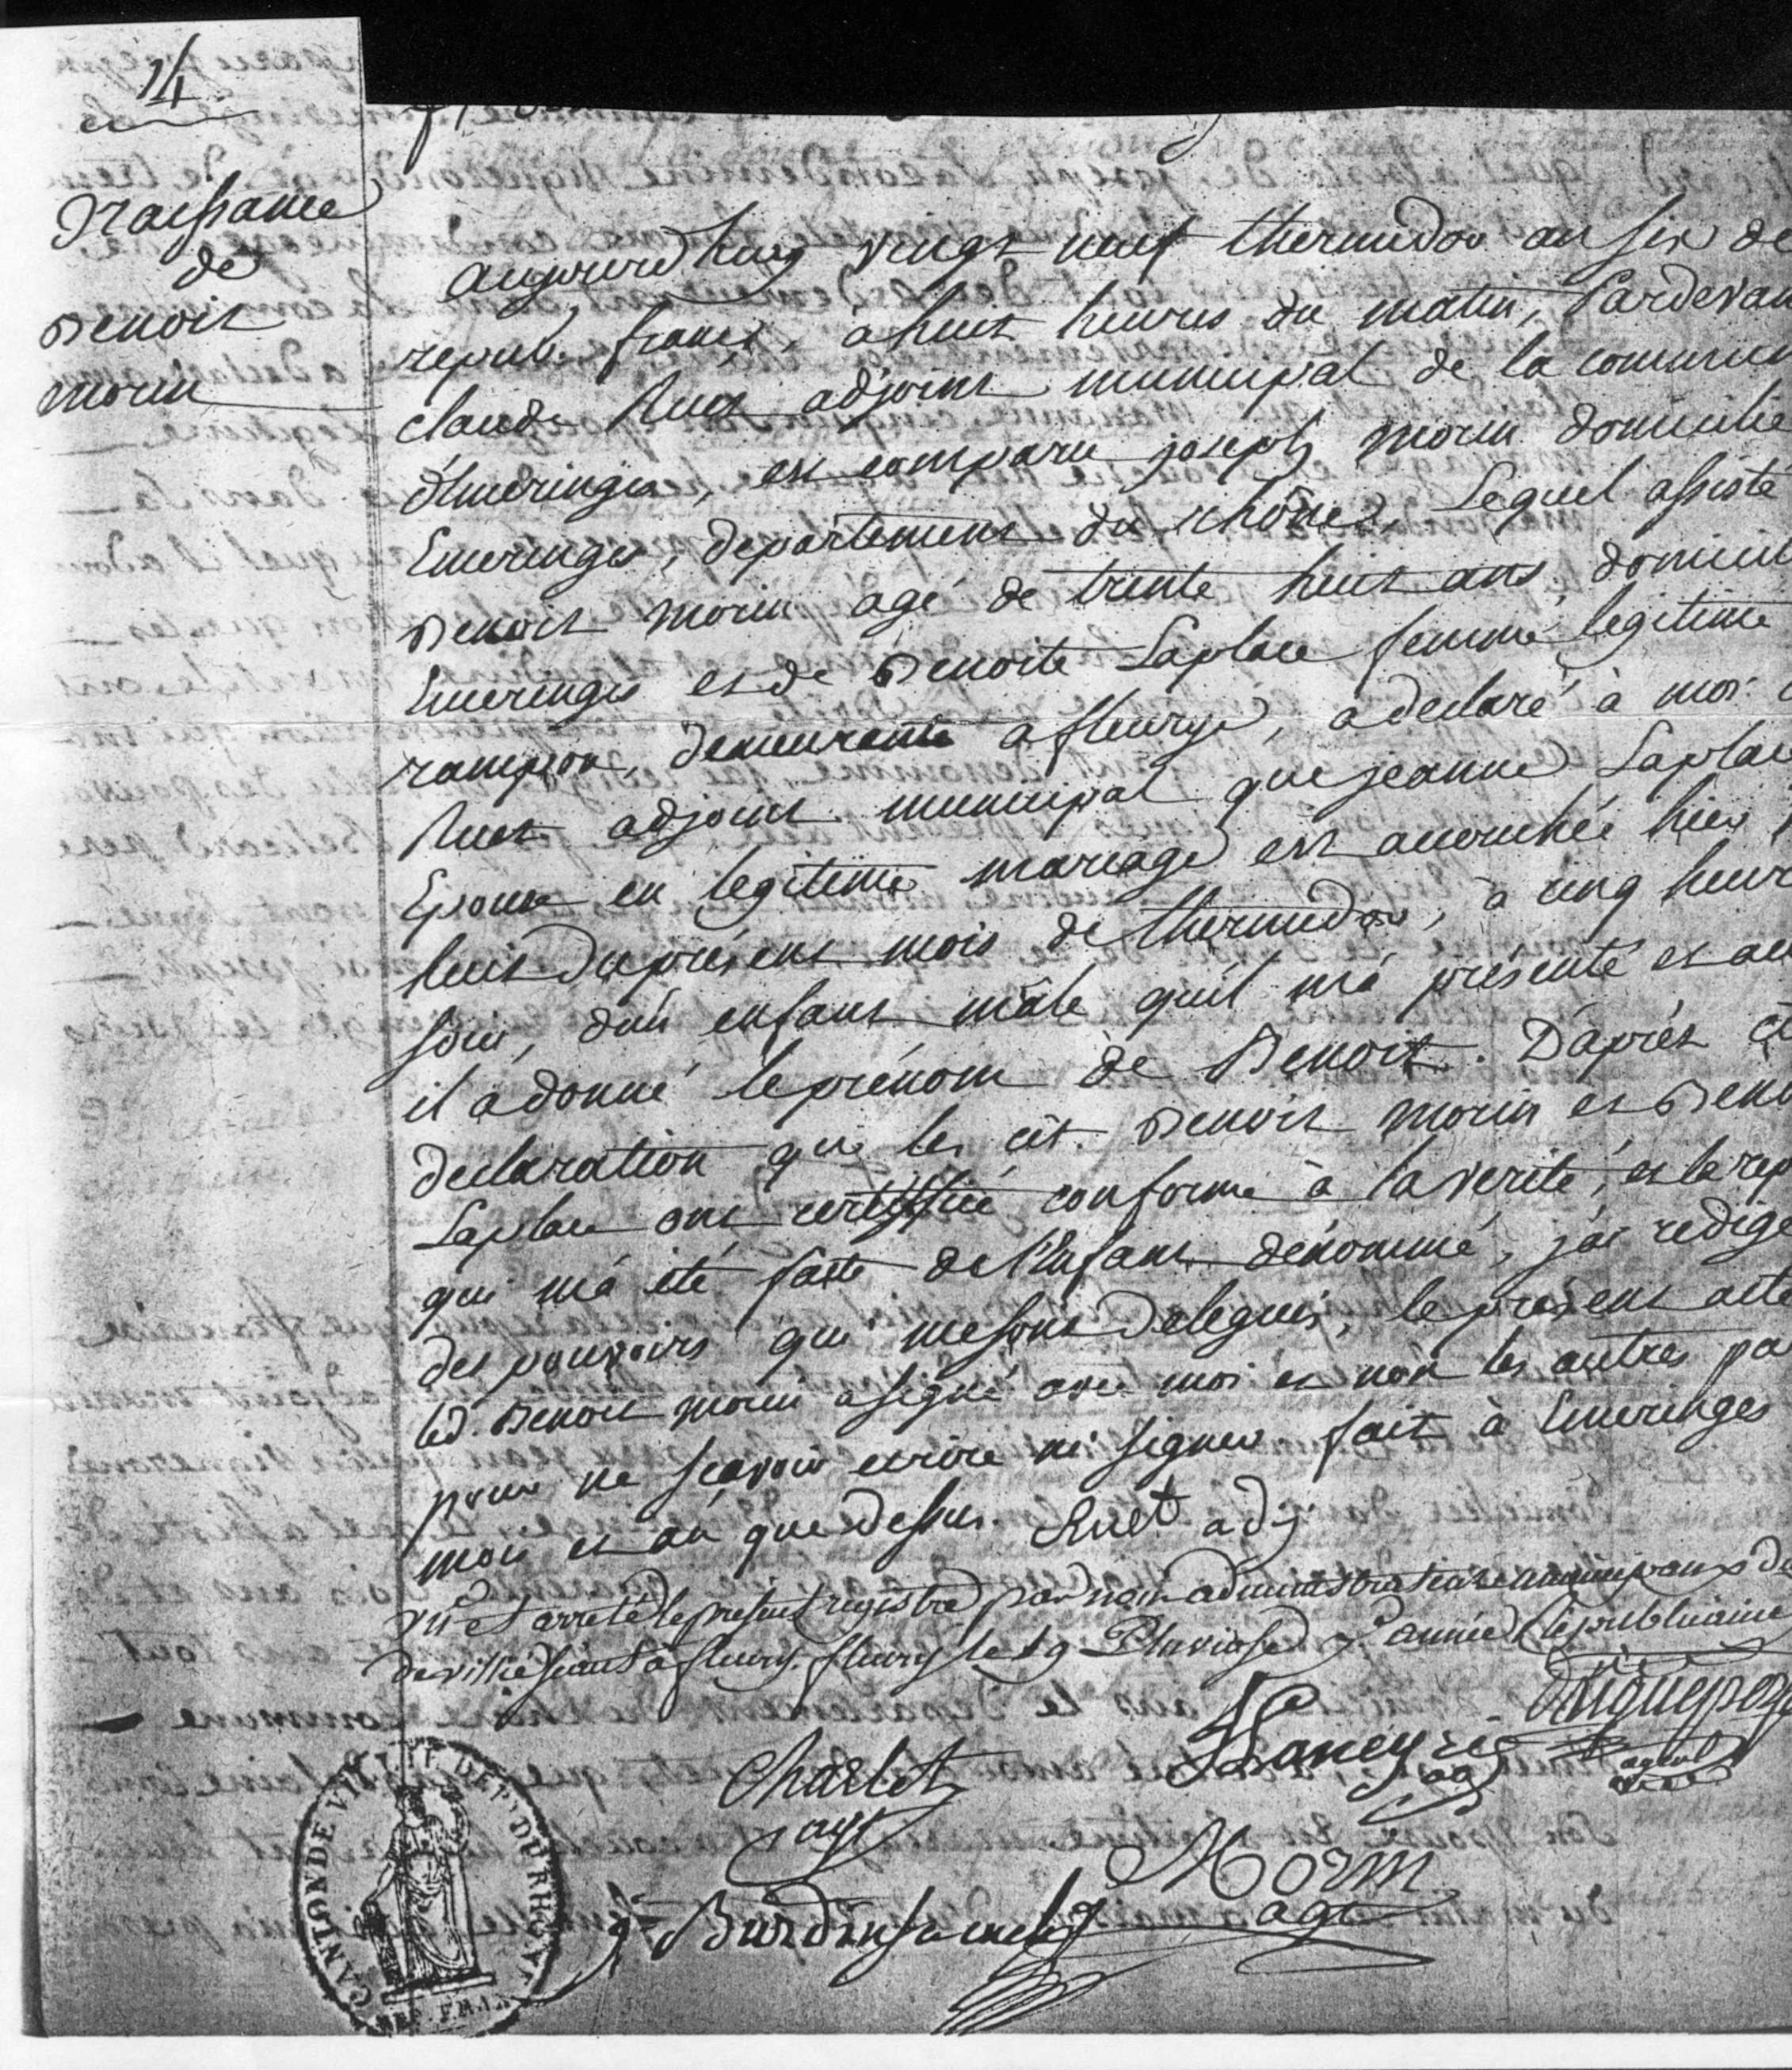 14
Naissance
de
Benoit
morin
aujourd'huy vingt neuf thermidor an six de
repub. franç., à huit heures du matin, Pardevan
claude Ruet adjoint municipal de la commun
d'Emeringes, est comparu joseph morin domicilié
Emeringes, département du rhône, Lequel assisté
Benoit morin agé de trente huit ans, domicil
Emeringes et de Benoite Laplace femme legitime
rampon, demeurante a fleurye, a declaré à moi
Ruet adjoint municipal que jeanne Laplac
Epouse en legitime mariage est accouchée hier
huit du présent mois de thermidor, à cinq heur
soir, d'un enfant mâle qu'il m'a présenté et au
il a donné le prénom de Benoit. D'après ce
declaration que les cit. Benoit morin et Beno
Laplace ont certiffié conforme à la verité, et la rep
qui m'a été faite de l'Enfant dénommé, j'ai redigé
des pouvoirs qui me sont delegués, le présent acte
led. Benoit morin a signé avec moi et non les autres pa
pour ne sçavoir ecrire ni signer fait à Emeringes
mois et an que dessus. Ruet adj
vu et arreté le present registre par nous administrateurs municipaux d
de villié séant à fleury. fleury le 19 Pluviose 7e année Républicaine
Charlet
agt
agt
agent
Morin
agt
CANTON DE VILLIE DEPT DU RHONE
REP. FRAN